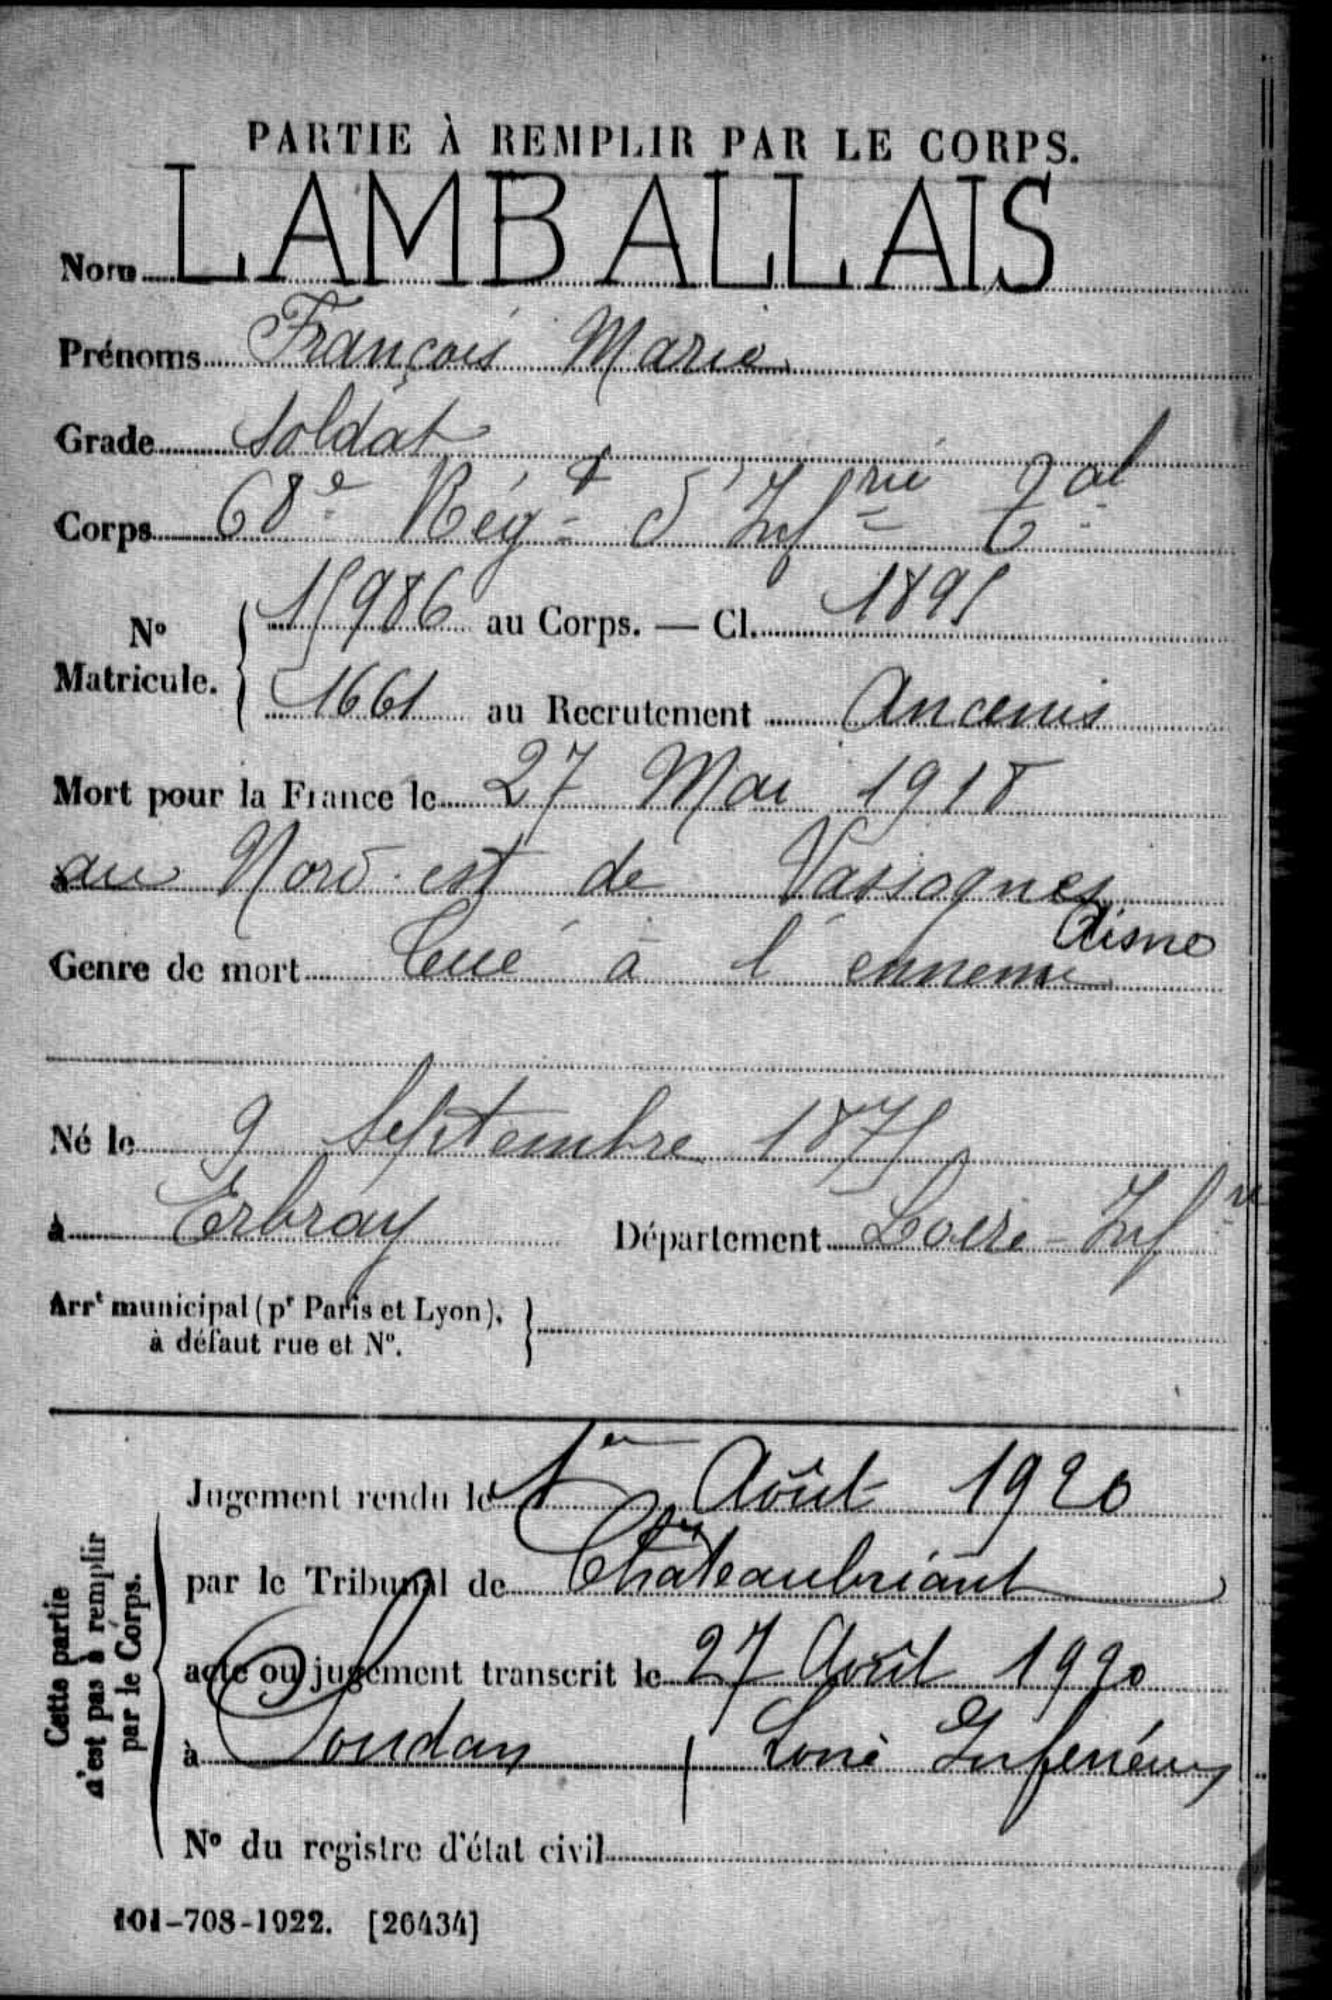 PARTIE À REMPLIR PAR LE CORPS.
Nom LAMBALLAIS
Prénoms François Marie
Grade Soldat
Corps 68e Régt d'Infrie Tal
No Matricule. 15986 au Corps. — Cl. 1895
1661 au Recrutement Ancenis
Mort pour la France le 27 Mai 1918
au Nord-est de Vassognes
Aisne
Genre de mort Tué à l'ennemi
Né le 9 Septembre 1875
à Erbray Département Loire-Infre
Arrt municipal (pr Paris et Lyon), à défaut rue et No.
Cette partie n'est pas à remplir par le Corps.
Jugement rendu le 1er Août 1920
par le Tribunal de Châteaubriant
acte ou jugement transcrit le 27 Août 1920
à Soudan Loire Inférieure
No du registre d'état civil
101-708-1922. [26434]